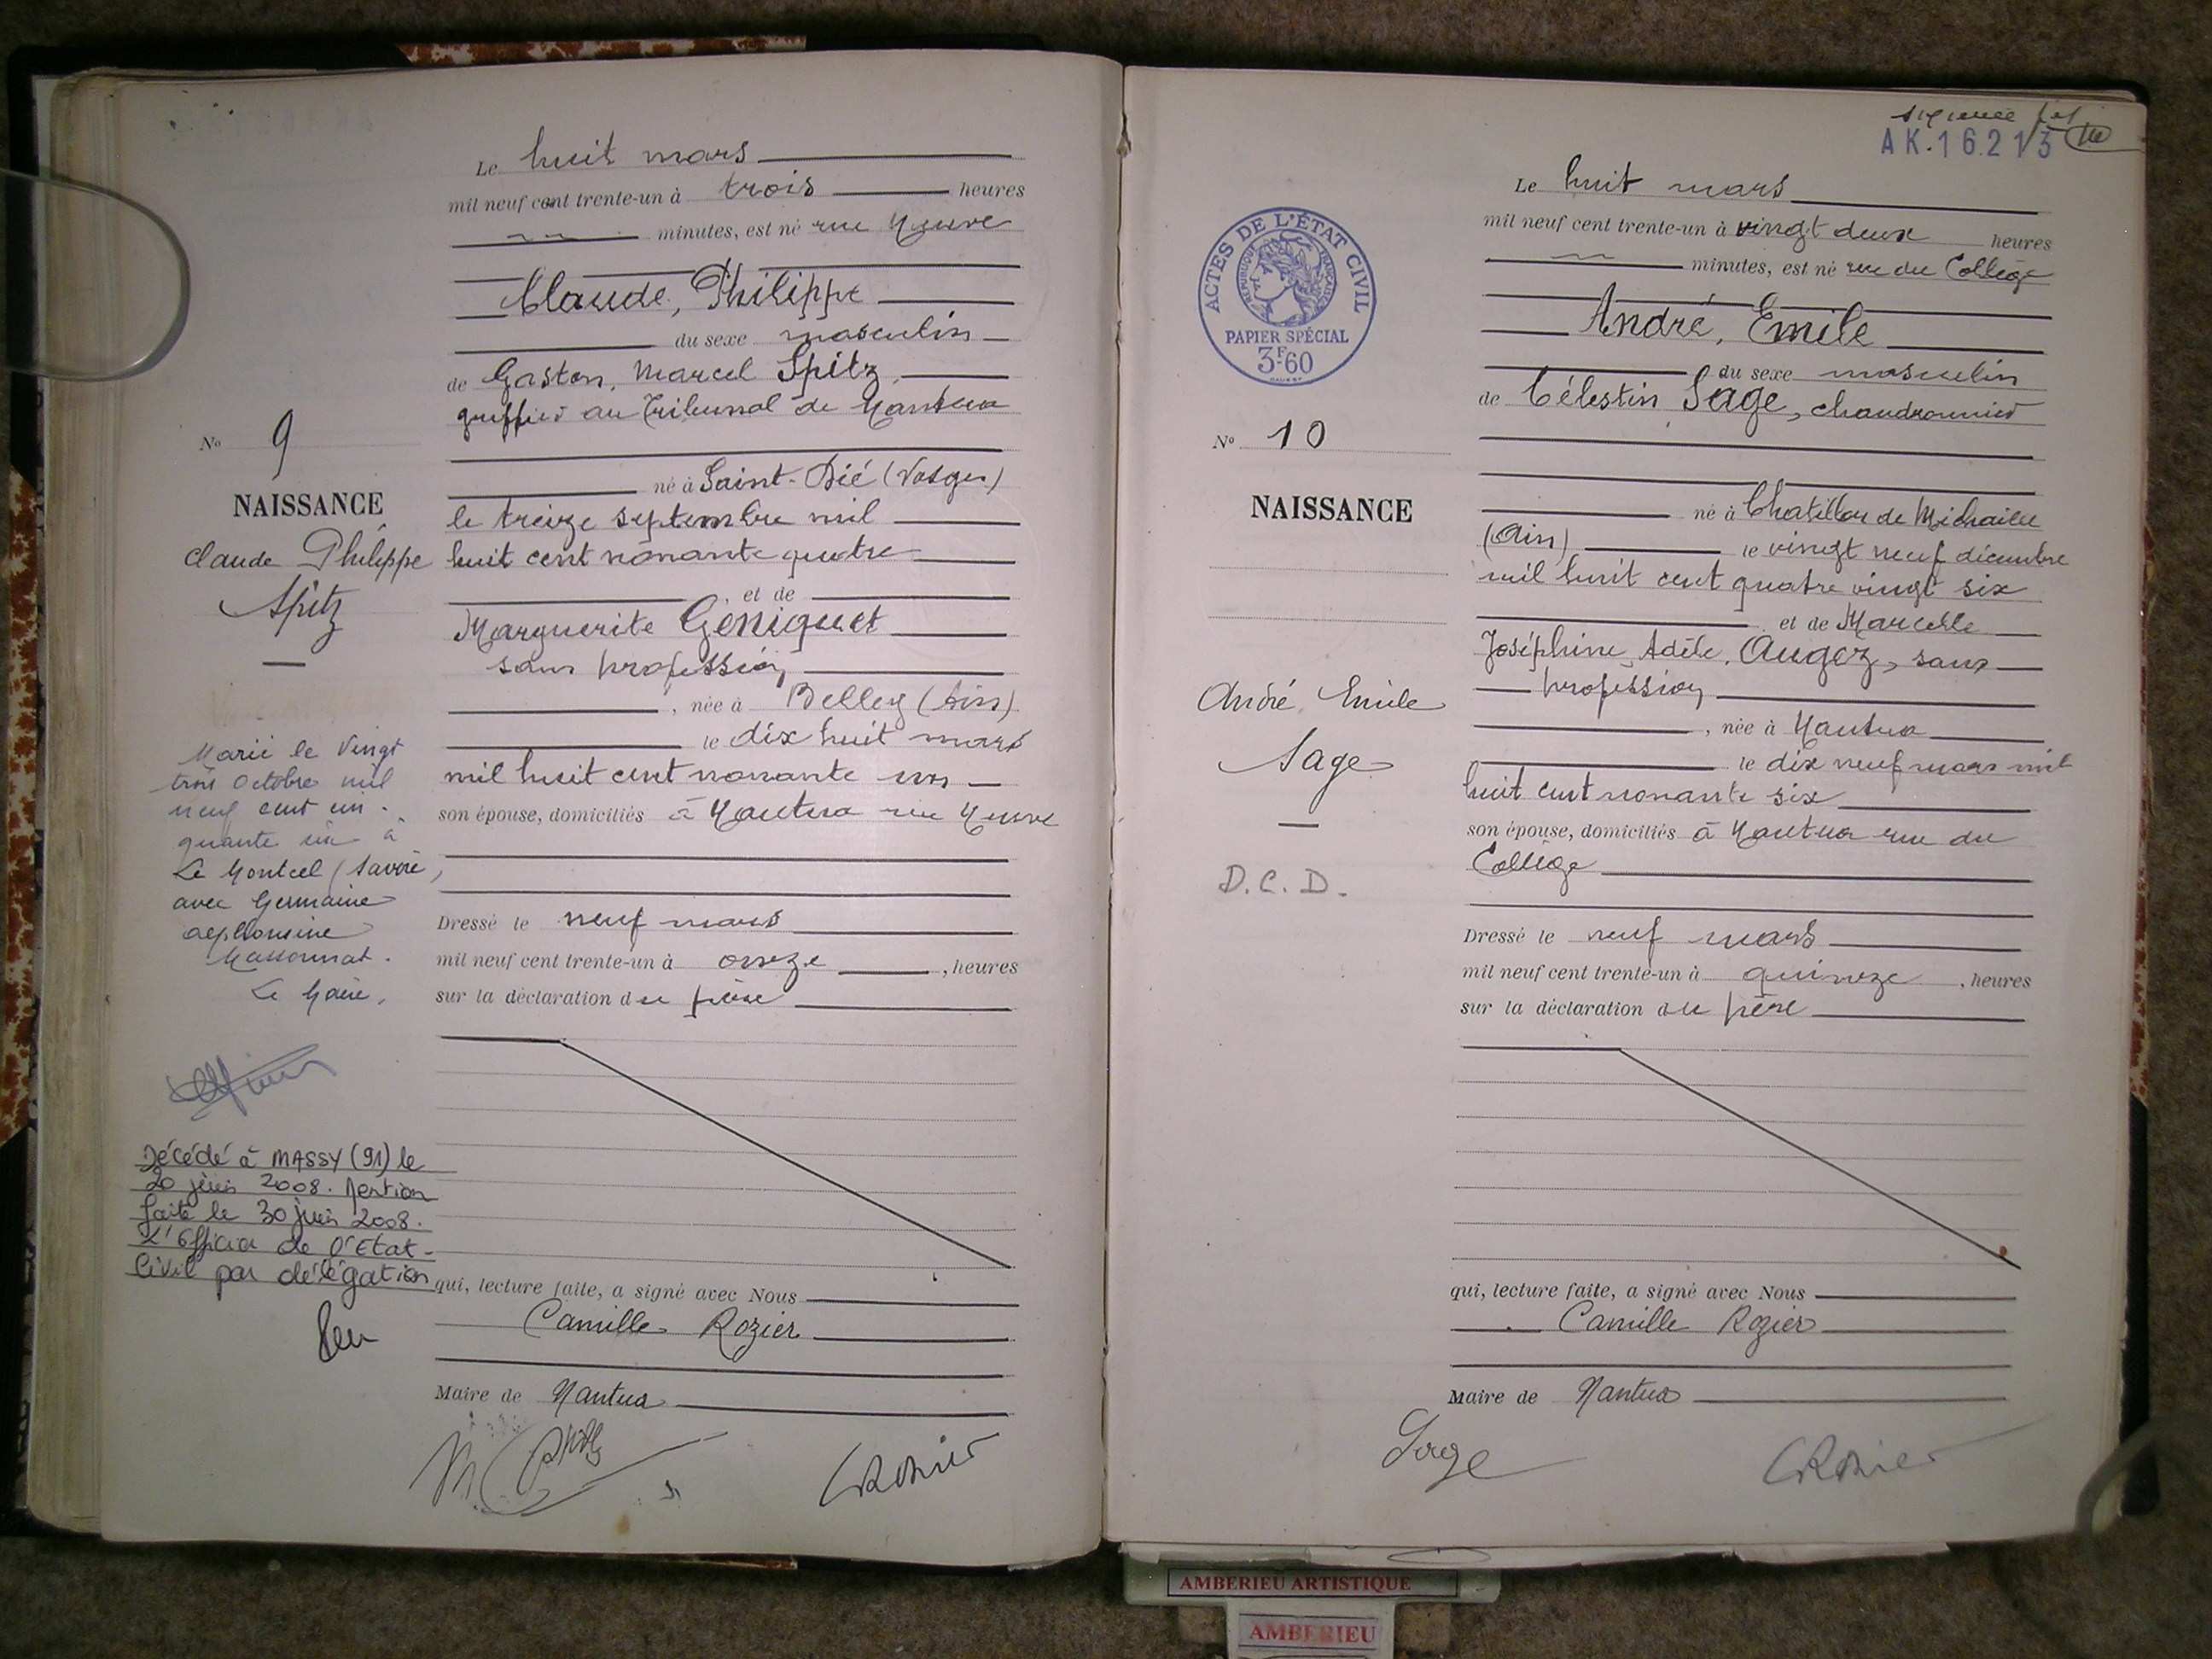 Le huit mars
mil neuf cent trente-un à trois heures
minutes, est né rue Neuve
Claude, Philippe
du sexe masculin
de Gaston, Marcel Spitz,
greffier au Tribunal de Nantua
né à Saint-Dié (Vosges)
le treize septembre mil
huit cent nonante quatre
et de
Marguerite Géniquet
sans profession
, née à Belley (Ain)
le dix huit mars
mil huit cent nonante un
son épouse, domiciliés à Nantua rue Neuve
Dressé le neuf mars
mil neuf cent trente-un à onze, heures
sur la déclaration du père
qui, lecture faite, a signé avec Nous
Camille Rozier
Maire de Nantua
Spitz
CRozier
No 9
NAISSANCE
Claude Philippe
Spitz
Marié le vingt
trois Octobre mil
neuf cent cin-
quante un à
Le Montcel (Savoie)
avec Germaine
Alphonsine
Massonnat.
Le Maire,
Décédé à MASSY (91) le
20 juin 2008. Mention
faite le 30 juin 2008.
L'Officier de l'Etat-
Civil par délégation
AK.16.213
Le huit mars
mil neuf cent trente-un à vingt deux heures
minutes, est né rue du Collège
André, Emile
du sexe masculin
de Célestin Sage, chaudronnier
né à Chatillon de Michaille
(Ain) le vingt neuf décembre
mil huit cent quatre vingt six
et de Marcelle
Joséphine, Adèle, Augez, sans
profession
, née à Nantua
le dix neuf mars mil
huit cent nonante six
son épouse, domiciliés à Nantua rue du
Collège
Dressé le neuf mars
mil neuf cent trente-un à quinze, heures
sur la déclaration du père
qui, lecture faite, a signé avec Nous
Camille Rozier
Maire de Nantua
Sage
CRozier
ACTES DE L'ÉTAT CIVIL
RÉPUBLIQUE FRANÇAISE
PAPIER SPÉCIAL
3F60
No 10
NAISSANCE
André, Emile
Sage
D.C.D.
AMBERIEU ARTISTIQUE
AMBERIEU